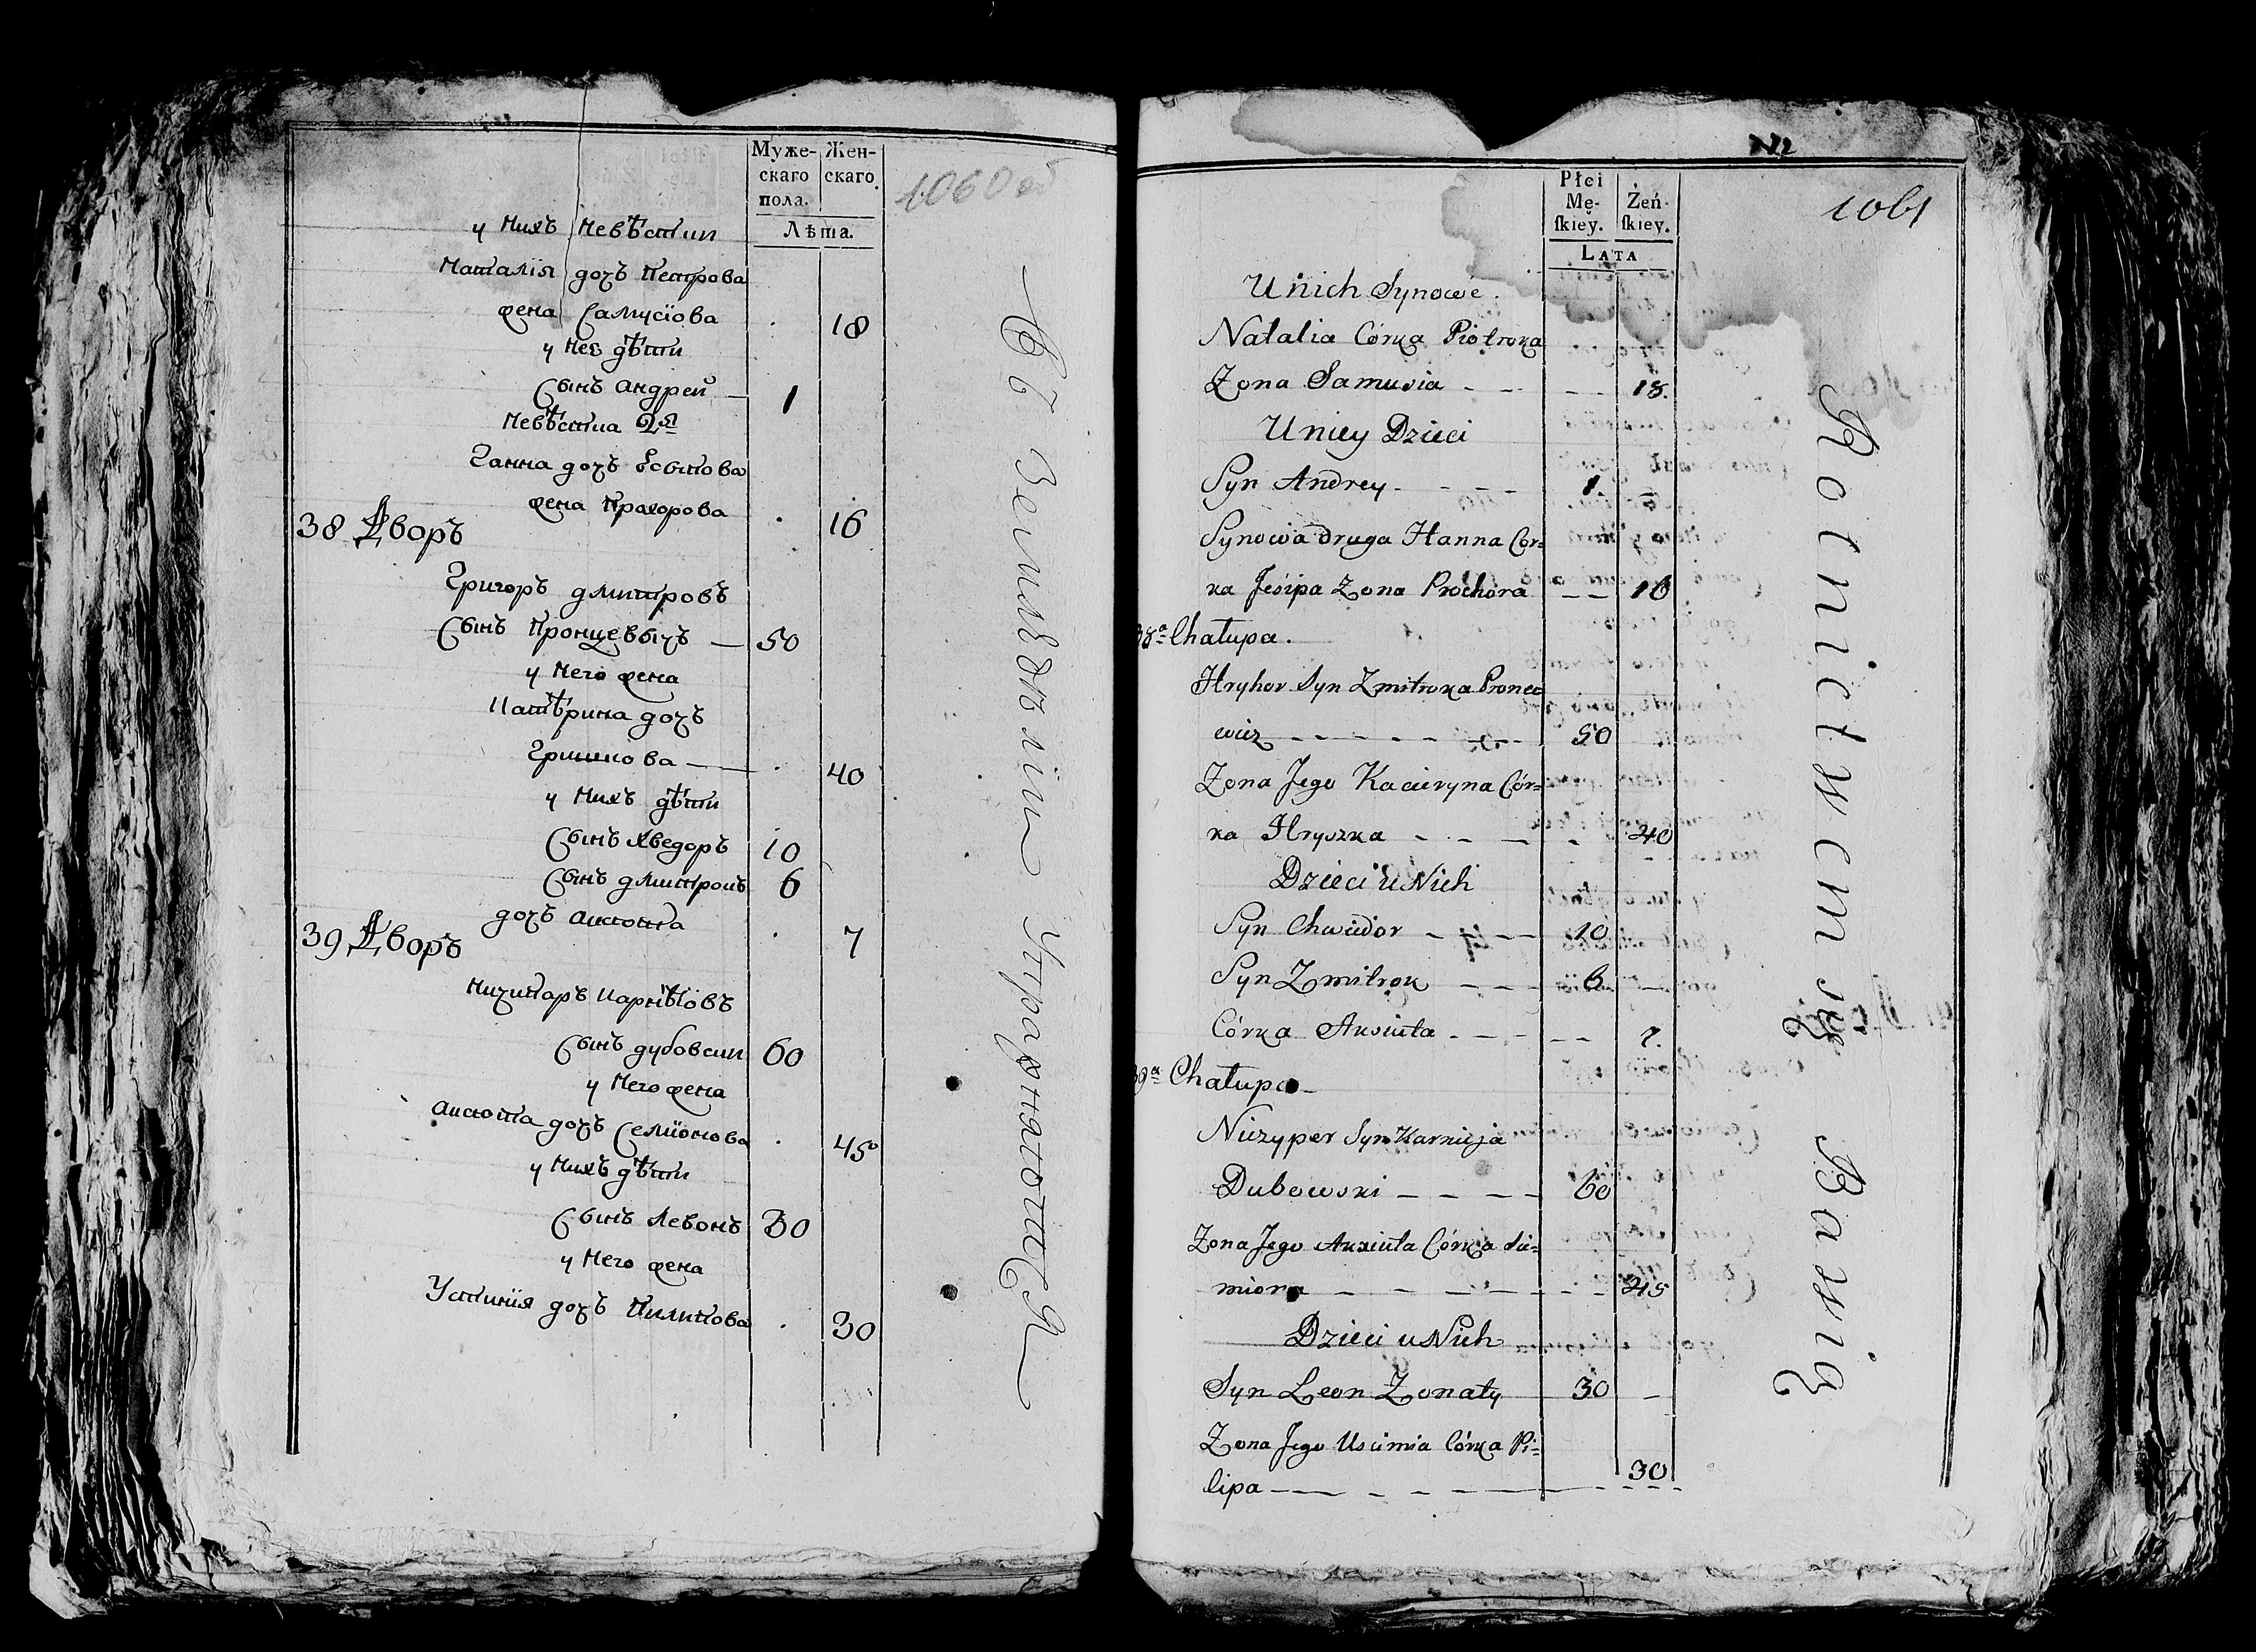 Муже-
скаго
пола.
Жен-
скаго.
Лѣта.
1060 об
у нихъ невѣстки
Наталія дочь Петрова
жена Самусіова 18
у нее дѣти
Сынъ андрей 1
невѣстка 2я
Ганна дочъ Есыпова
жена Прахорова 16
38 Дворъ
Григоръ дмитровъ
Сынъ Пронцевычъ 50
у него жена
Катѣрина дочъ
Гришкова 40
у нихъ дѣти
Сынъ Хведоръ 10
Сынъ дмитрокъ 6
дочъ аксюта 7
39 Дворъ
Ничипаръ карнѣіовъ
Сынъ дубовски 60
у него жена
аксюта дочъ Семіонова 45
у нихъ дѣти
Сынъ Левонъ 30
у него жена
Устинія дочъ Пилипова 30
въ Земледѣліи Упражняются
1061
Płci
Mę-
skiey.
Żeń-
skiey.
LATA
U nich Synowe.
Natalia Córka Piotroka
Zona Samusia 18.
U niey Dzieci
Syn Andrey 1
Synowa druga Hanna Cor=
ka Jesipa Zona Prochora 16
38a Chałupa.
Hryhor Syn Zmitroka Pronce
wicz 50
Zona Jego Kacieryna Cór=
ka Hryszka 40
Dzieci u Nich
Syn Chwiedor 10
Syn Zmitrok 6
Córka Aksiuta 7.
39a Chałupa
Niczyper Syn Karnieja
Dubowski 60
Zona Jego Aksiuta Córka Sie=
miona 45
Dzieci u Nich
Syn Leon Zonaty 30
Zona Jego Uscimia Córka Pi=
lipa 30
Rolnictwem się Bawią